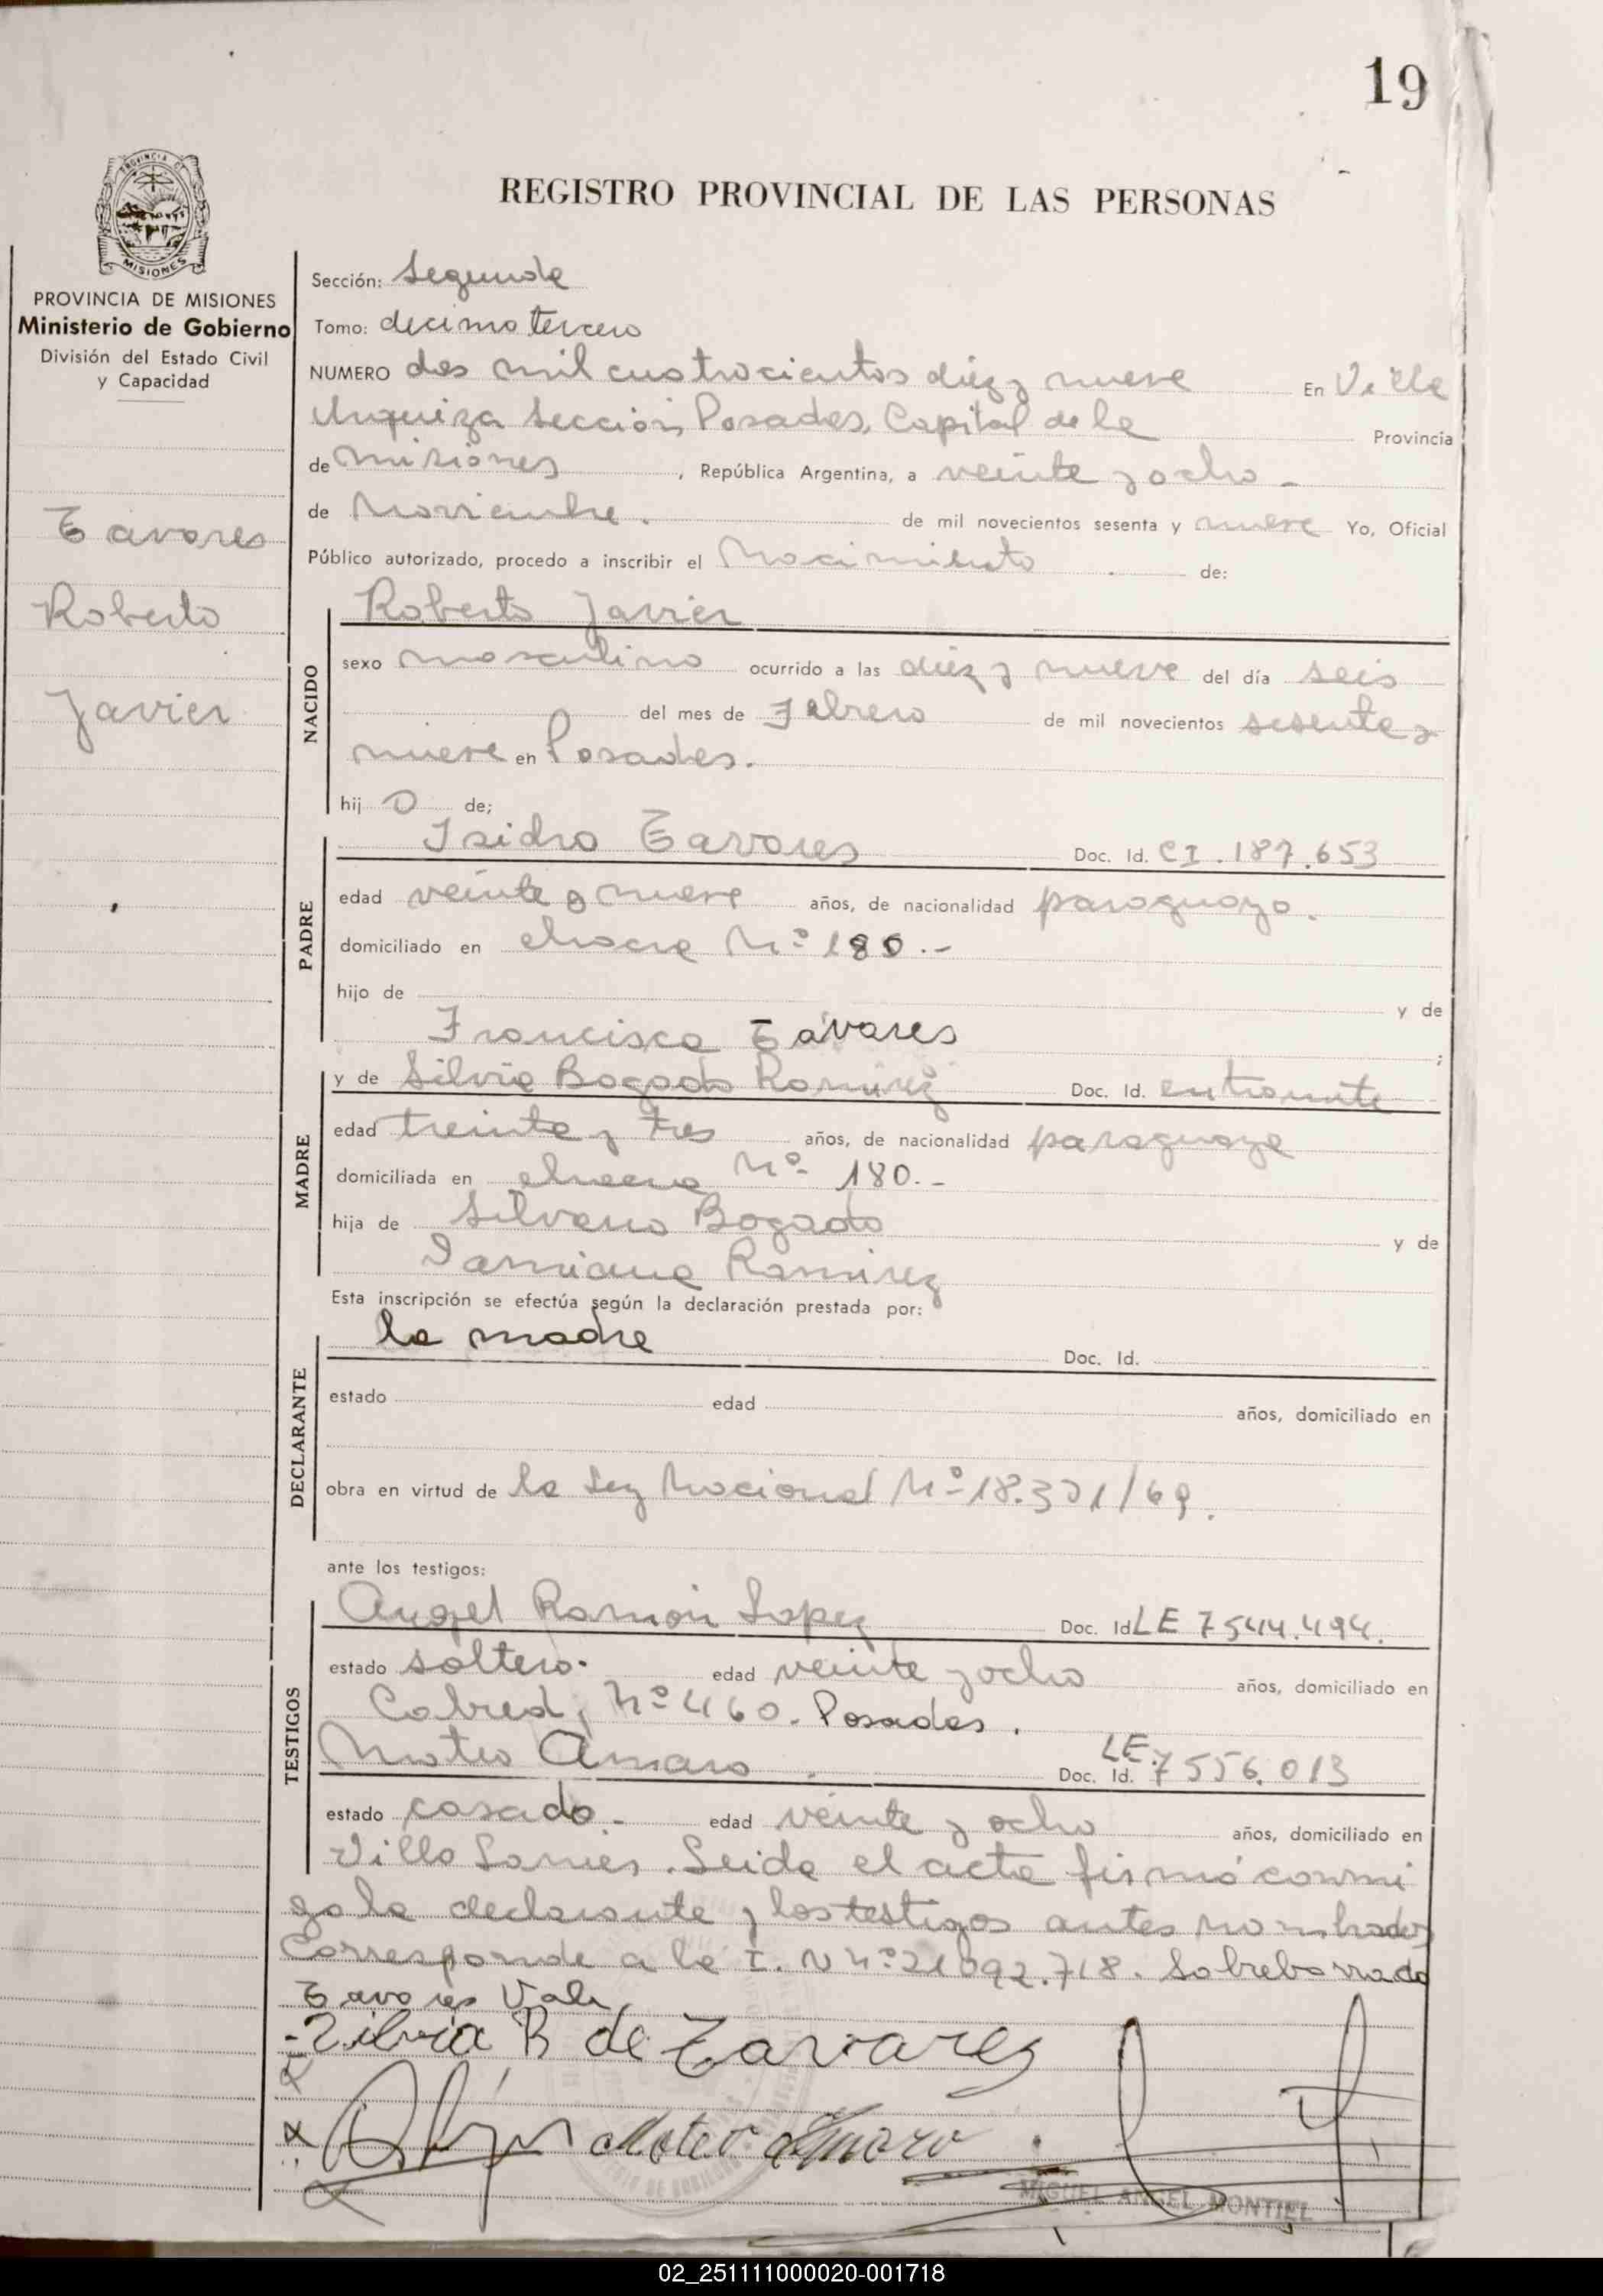 19
REGISTRO PROVINCIAL DE LAS PERSONAS
PROVINCIA DE MISIONES
Ministerio de Gobierno
División del Estado Civil
y Capacidad
Tavares
Roberto
Javier
Sección: Segunda
Tomo: decimo tercero
NUMERO dos mil cuatrocientos diez y nueve En Villa
Urquiza Sección Posadas, Capital de la Provincia
de Misiones, República Argentina, a veinte y ocho -
de Noviembre. de mil novecientos sesenta y nueve Yo, Oficial
Público autorizado, procedo a inscribir el Nacimiento de:
NACIDO
Roberto Javier
sexo masculino ocurrido a las diez y nueve del día seis
del mes de Febrero de mil novecientos sesenta y
nueve en Posadas.
hijo de;
PADRE
Isidro Tavares Doc. Id. CI. 187.653
edad veinte y nueve años, de nacionalidad paraguayo.
domiciliado en chacra Nº 180.-
hijo de y de
Francisca Tavares ;
MADRE
y de Silvia Bogado Ramirez Doc. Id. entramite
edad treinta y tres años, de nacionalidad paraguaya
domiciliada en chacra Nº 180.-
hija de Silvano Bogado y de
Damiana Ramirez
Esta inscripción se efectúa según la declaración prestada por:
DECLARANTE
la madre Doc. Id.
estado edad años, domiciliado en
obra en virtud de la Ley Nacional Nº 18.321/69.
ante los testigos:
TESTIGOS
Angel Ramón Lopez Doc. Id LE 7544.494.
estado soltero. edad veinte y ocho años, domiciliado en
Cabred, Nº 460. Posadas.
Mateo Amaro Doc. Id. LE. 7556.013
estado casado.- edad veinte y ocho años, domiciliado en
Villa Lanus. Leida el acta firmó conmi
go la declarante y los testigos antes nombrados
Corresponde a la I. N nº 21.092.718. Sobreborrado
Tavares Vale
Silvia B de Tavares
Mateo Amaro
MIGUEL ANGEL MONTIEL
02_251111000020-001718